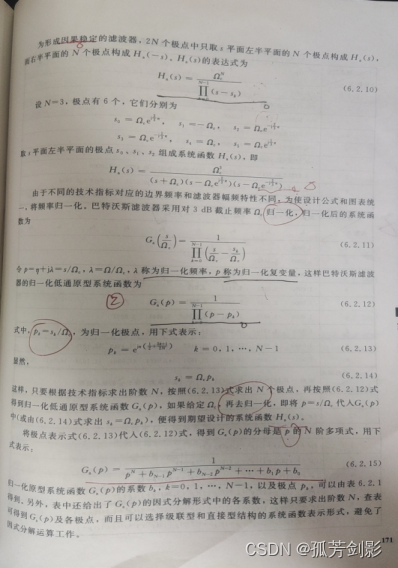 为形成因果稳定的滤波器,2N个极点中只取s平面左半平面的N个极点构成Hₐ(s),
而右半平面的N个极点构成Hₐ(-s)。Hₐ(s)的表达式为
Hₐ(s) = Ω_c^N / ∏_{k=0}^{N-1} (s - s_k) (6.2.10)
设N=3,极点有6个,它们分别为
取s平面左半平面的极点s₀、s₁、s₂组成系统函数Hₐ(s),即
由于不同的技术指标对应的边界频率和滤波器幅频特性不同,为使设计公式和图表统
一,将频率归一化。巴特沃斯滤波器采用对3 dB截止频率Ω_c归一化,归一化后的系统函
数为
Gₐ(s/Ω_c) = 1 / ∏_{k=0}^{N-1} (s/Ω_c - s_k/Ω_c) (6.2.11)
令p=η+jλ=s/Ω_c,λ=Ω/Ω_c,λ称为归一化频率,p称为归一化复变量,这样巴特沃斯滤波
器的归一化低通原型系统函数为
Gₐ(p) = 1 / ∏_{k=0}^{N-1} (p - p_k) (6.2.12)
式中,p_k=s_k/Ω_c,为归一化极点,用下式表示:
p_k = e^{jπ(1/2+(2k+1)/2N)} k=0,1,…,N-1 (6.2.13)
显然,
s_k = Ω_c p_k (6.2.14)
这样,只要根据技术指标求出阶数N,按照(6.2.13)式求出N个极点,再按照(6.2.12)式
得到归一化低通原型系统函数Gₐ(p),如果给定Ω_c,再去归一化,即将p=s/Ω_c代入Gₐ(p)
中(或由(6.2.14)式求出s_k=Ω_c p_k),便得到期望设计的系统函数Hₐ(s)。
将极点表示式(6.2.13)代入(6.2.12)式,得到Gₐ(p)的分母是p的N阶多项式,用下
式表示:
Gₐ(p) = 1 / (p^N + b_{N-1}p^{N-1} + b_{N-2}p^{N-2} + … + b₁p + b₀) (6.2.15)
归一化原型系统函数Gₐ(p)的系数b_k,k=0,1,…,N-1,以及极点p_k,可以由表6.2.1
得到。另外,表中还给出了Gₐ(p)的因式分解形式中的各系数,这样只要求出阶数N,查表
可得到Gₐ(p)及各极点,而且可以选择级联型和直接型结构的系统函数表示形式,避免了
因式分解运算工作。
171
CSDN @孤芳剑影